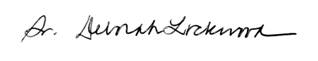 Sr. Deborah Lockwood